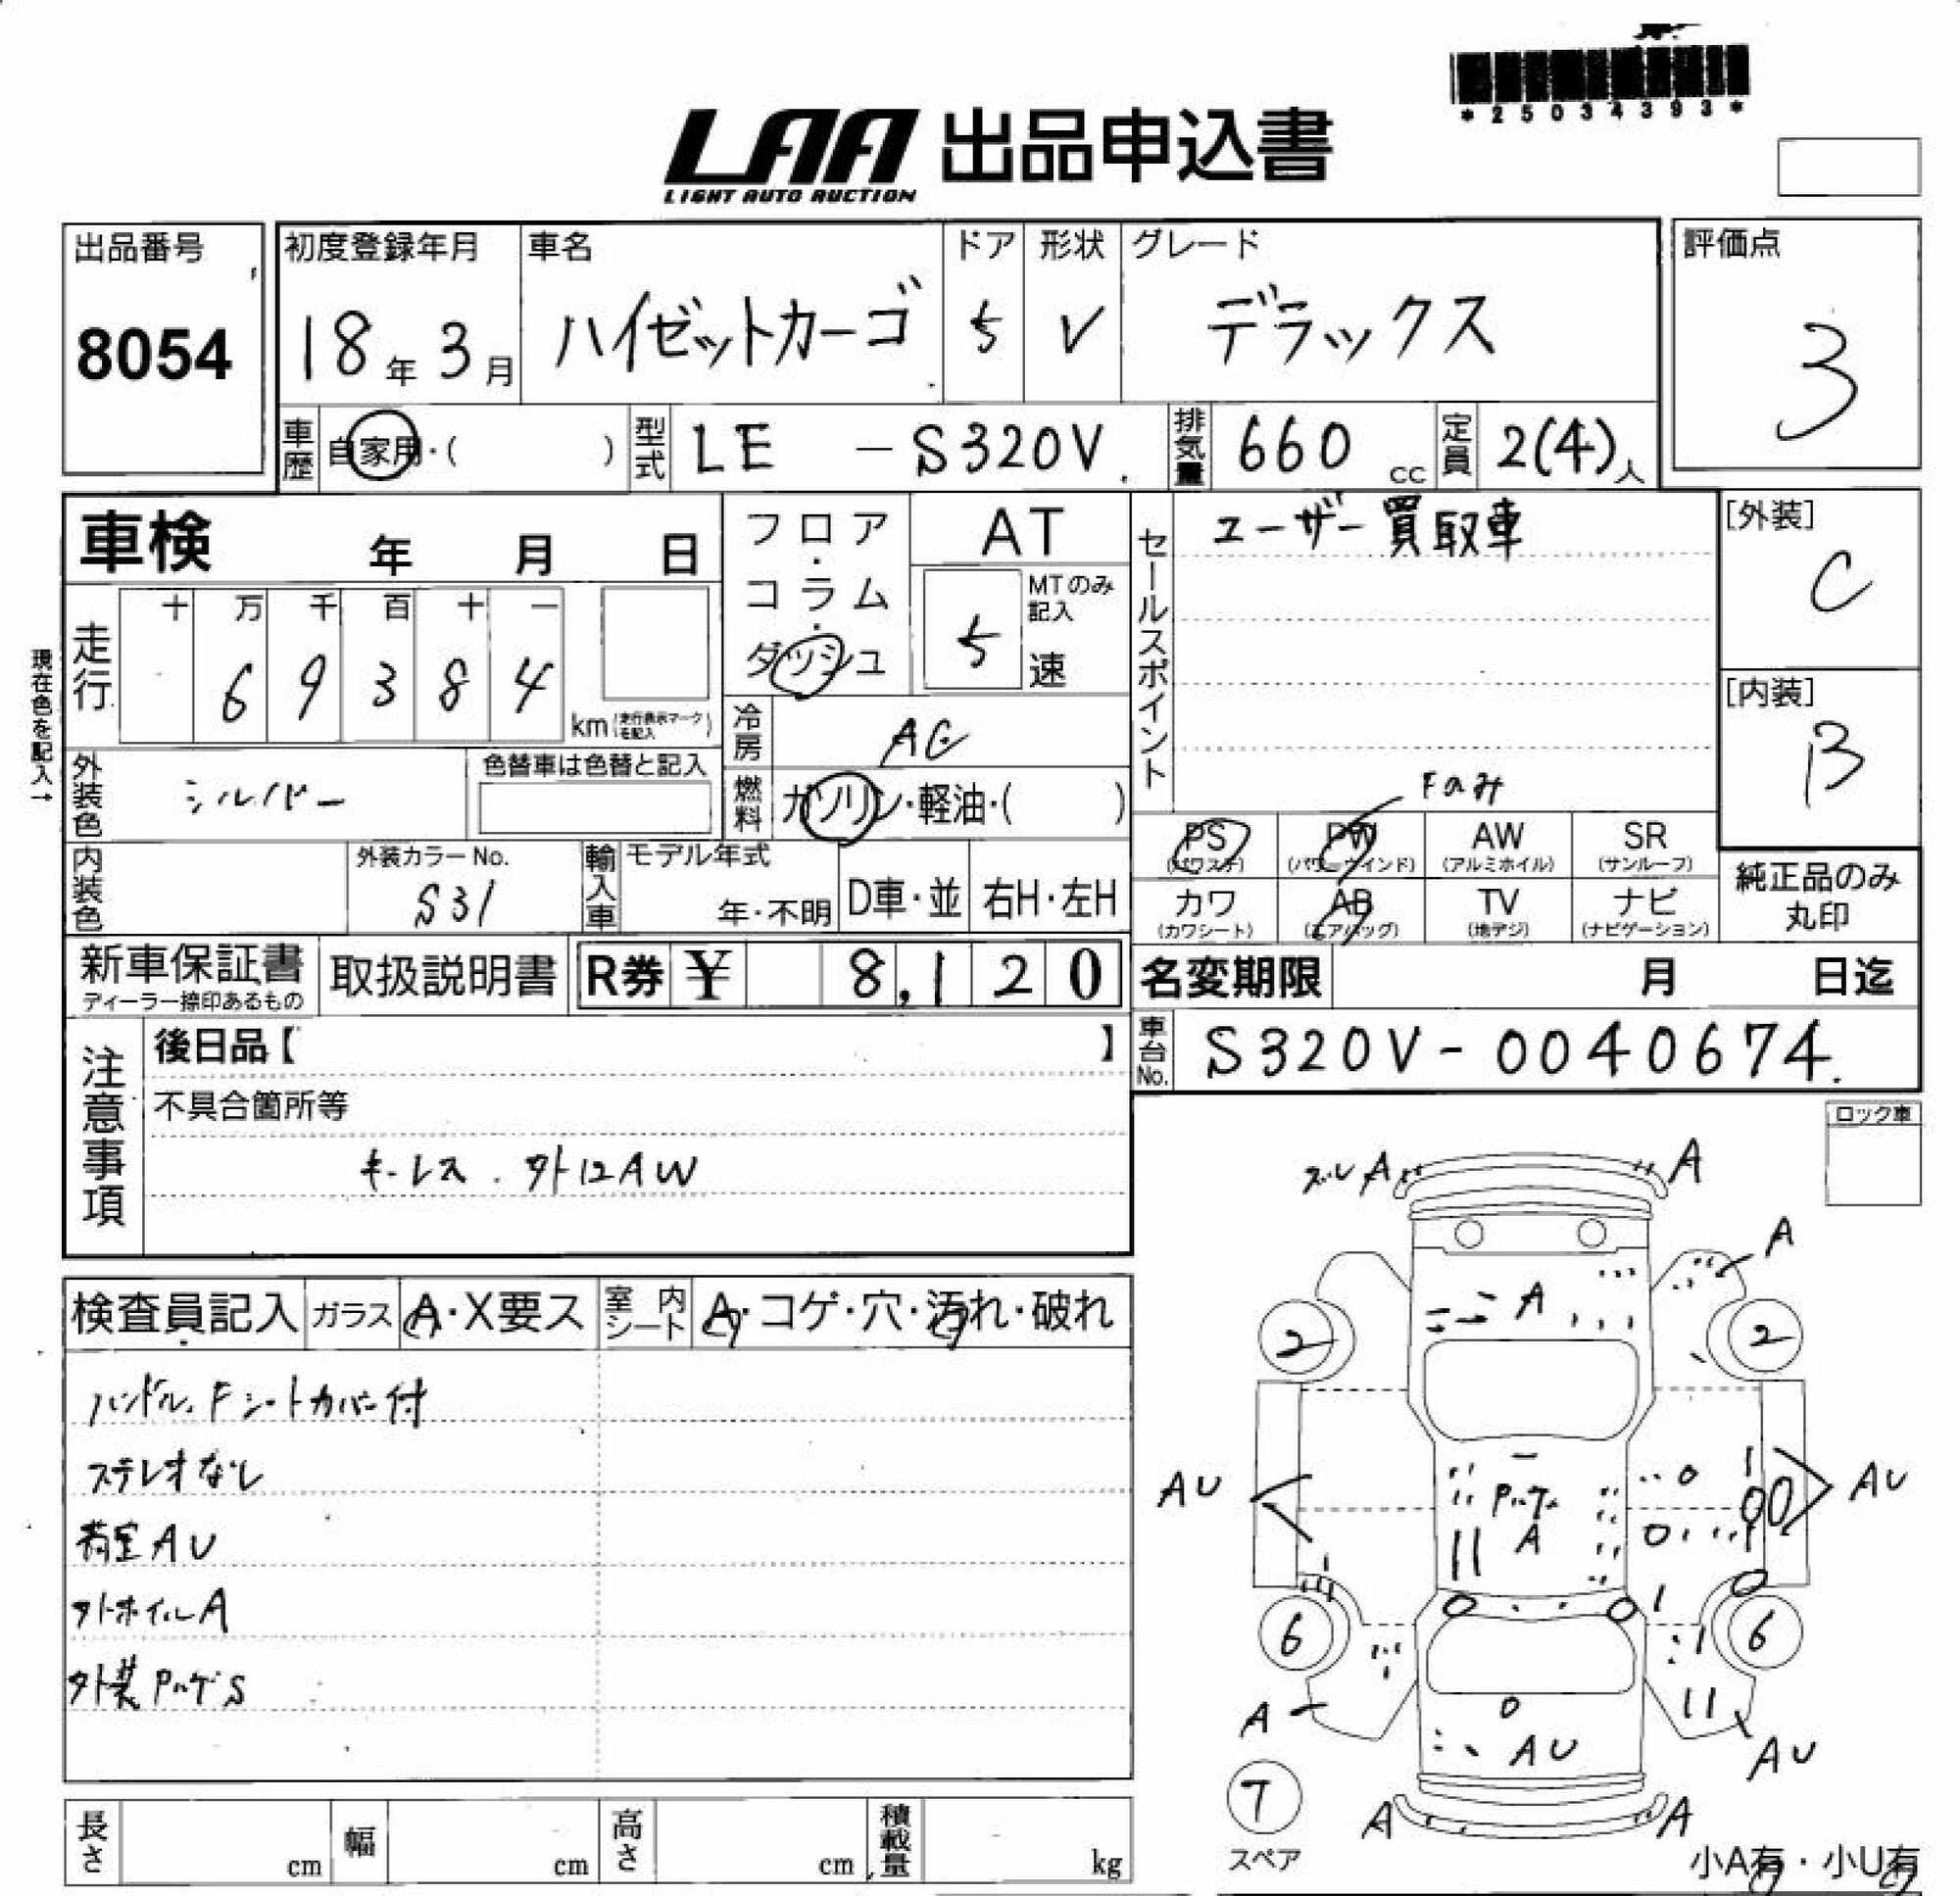 *25034393*
LAA 出品申込書
LIGHT AUTO AUCTION
出品番号
8054
初度登録年月
18年3月
車名
ハイゼットカーゴ
ドア
5
形状
V
グレード
デラックス
評価点
3
車歴
自家用・( )
型式
LE -S320V
排気量
660 cc
定員
2(4)人
車検 年 月 日
現在色を記入→
走行
十 万 千 百 十 一
6 9 3 8 4
km (走行表示マークを記入)
外装色
シルバー
色替車は色替と記入
内装色
外装カラーNo.
S31
輸入車
モデル年式
年・不明
D車・並
右H・左H
フロア・コラム・ダッシュ
AT
MTのみ記入
5 速
冷房
AC
燃料
ガソリン・軽油・( )
セールスポイント
ユーザー買取車
Fのみ
PS PW AW SR
(パワステ) (パワーウインド) (アルミホイル) (サンルーフ)
カワ AB TV ナビ
(カワシート) (エアバッグ) (地デジ) (ナビゲーション)
[外装]
C
[内装]
B
純正品のみ丸印
新車保証書
ディーラー捺印あるもの
取扱説明書
R券 ¥ 8,120
名変期限 月 日迄
車台No.
S320V-0040674
注意事項
後日品【 】
不具合箇所等
キーレス. 外12AW
ロック車
検査員記入
ガラス
A・X要ス
室内シート
A・コゲ・穴・汚れ・破れ
ハンドル、Fシートカバー付
ステレオなし
荷室AU
外ホイルA
外装PハゲS
ズレA A
A
A
2 2
AU
Pハゲ
A
AU
6 6
A
AU
AU
7
スペア
A A
小A有・小U有
長さ cm
幅 cm
高さ cm
積載量 kg